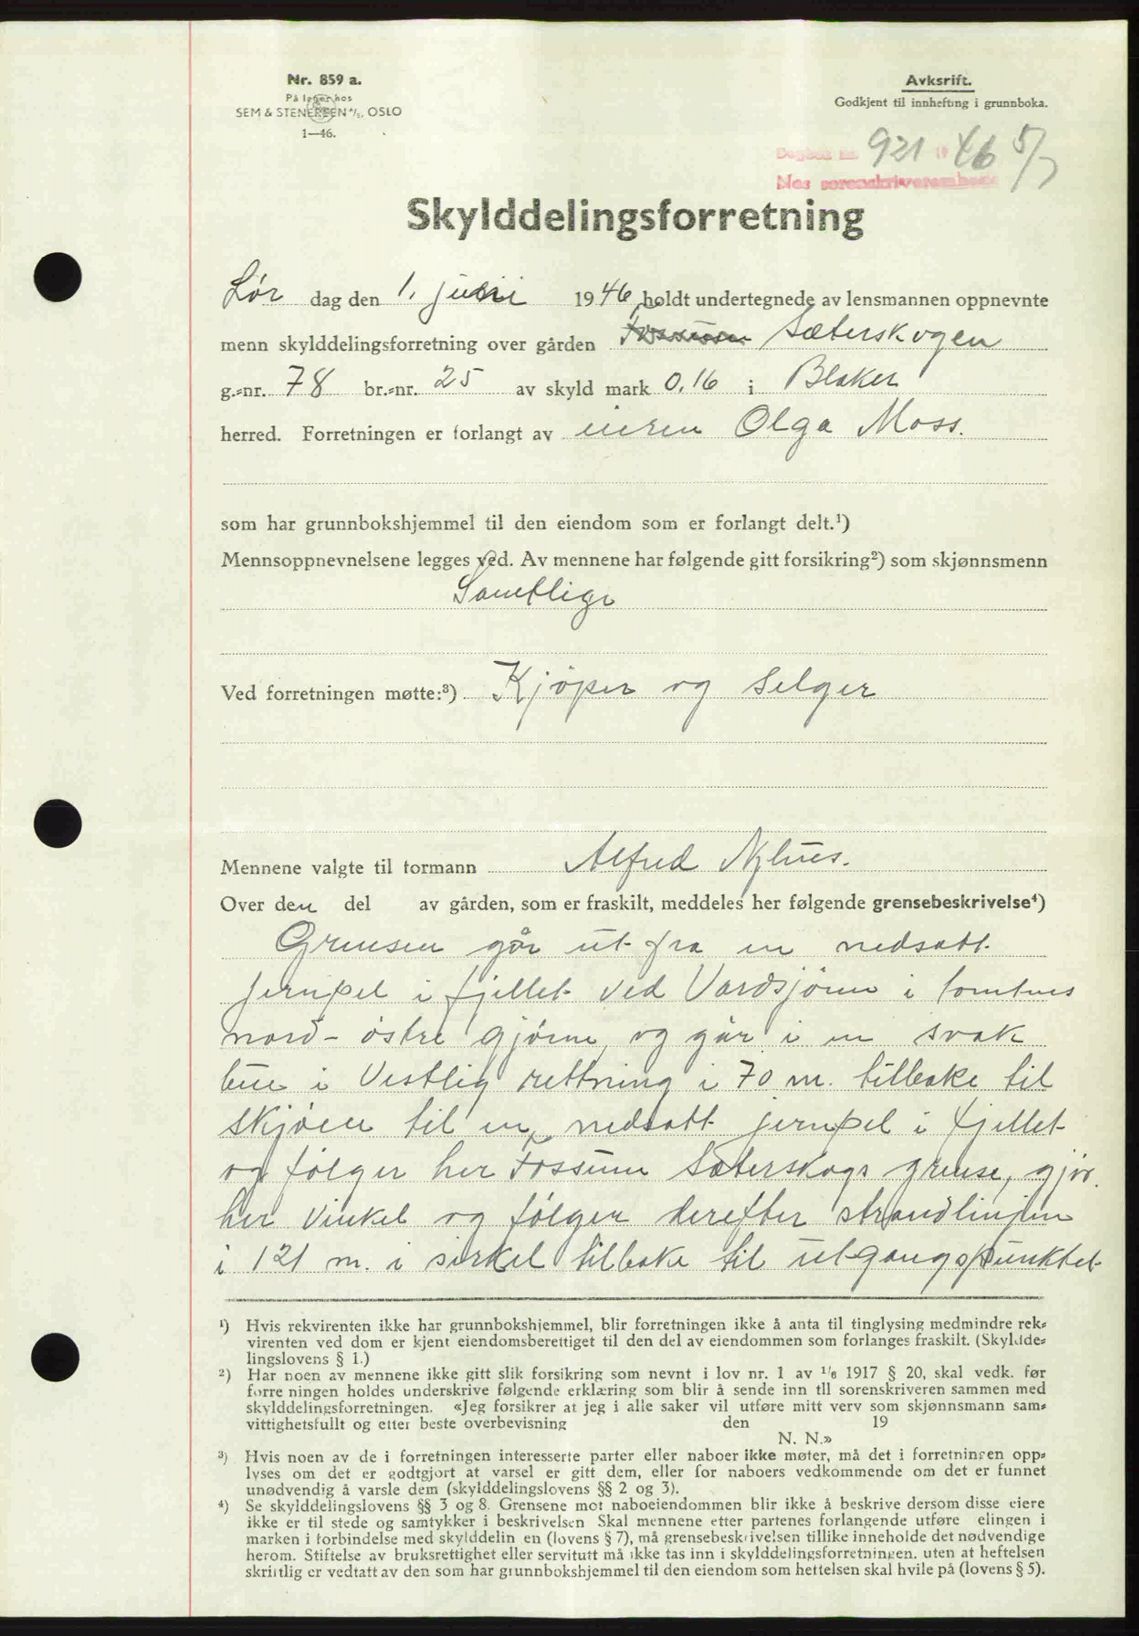 Nr. 859 a.
På lager hos
SEM & STENERSEN A/S, OSLO
1—46.
Avksrift.
Godkjent til innhefting i grunnboka.
Dagbok nr. 921 19 46 5/7
Nes sorenskriverembede
Skylddelingsforretning
Lør dag den 1. juni 1946, holdt undertegnede av lensmannen oppnevnte
menn skylddelingsforretning over gården Fossum Sæterskogen
g.=nr. 78 br.=nr. 25 av skyld mark 0,16 i Blaker
herred. Forretningen er forlangt av eieren Olga Moss.
som har grunnbokshjemmel til den eiendom som er forlangt delt.¹)
Mennsoppnevnelsene legges ved. Av mennene har følgende gitt forsikring²) som skjønnsmenn
Samtlige
Ved forretningen møtte:³) Kjøper og Selger
Mennene valgte til formann Alfred Nyhus.
Over den del av gården, som er fraskilt, meddeles her følgende grensebeskrivelse⁴)
Grensen går ut fra en nedsatt
jernpel i fjellet ved Vardsjøen i tomtens
nord-østre hjørne, og går i en svak
bue i Vestlig rettning i 70 m. tilbake til
skjøen til en nedsatt jernpel i fjellet
og følger her Fossum Sæterskogs grense, gjør
her Vinkel og følger derefter strandlinjen
i 121 m. i sirkel tilbake til utgangspunktet
¹) Hvis rekvirenten ikke har grunnbokshjemmel, blir forretningen ikke å anta til tinglysing medmindre rek=
virenten ved dom er kjent eiendomsberettiget til den del av eiendommen som forlanges fraskilt. (Skyldde=
lingslovens § 1.)
²) Har noen av mennene ikke gitt slik forsikring som nevnt i lov nr. 1 av 1/6 1917 § 20, skal vedk. før
forre ningen holdes underskrive følgende erklæring som blir å sende inn til sorenskriveren sammen med
skylddelingsforretningen. «Jeg forsikrer at jeg i alle saker vil utføre mitt verv som skjønnsmann sam=
vittighetsfullt og etter beste overbevisning den 19
N. N.»
³) Hvis noen av de i forretningen interesserte parter eller naboer ikke møter, må det i forretningen opp=
lyses om det er godtgjort at varsel er gitt dem, eller for naboers vedkommende om det er funnet
unødvendig å varsle dem (skylddelingslovens §§ 2 og 3).
⁴) Se skylddelingslovens §§ 3 og 8. Grensene mot naboeiendommen blir ikke å beskrive dersom disse eiere
ikke er til stede og samtykker i beskrivelsen Skal mennene etter partenes forlangende utføre elingen i
marken i forbindelse med skylddelin en (lovens § 7), må grensebeskrivelsen tillike inneholde det nødvendige
herom. Stiftelse av bruksrettighet eller servitutt må ikke tas inn i skylddelingsforretningen. uten at heftelsen
skriftlig er vedtatt av den som har grunnbokshjemmel til den eiendom som heftelsen skal hvile på (lovens § 5).